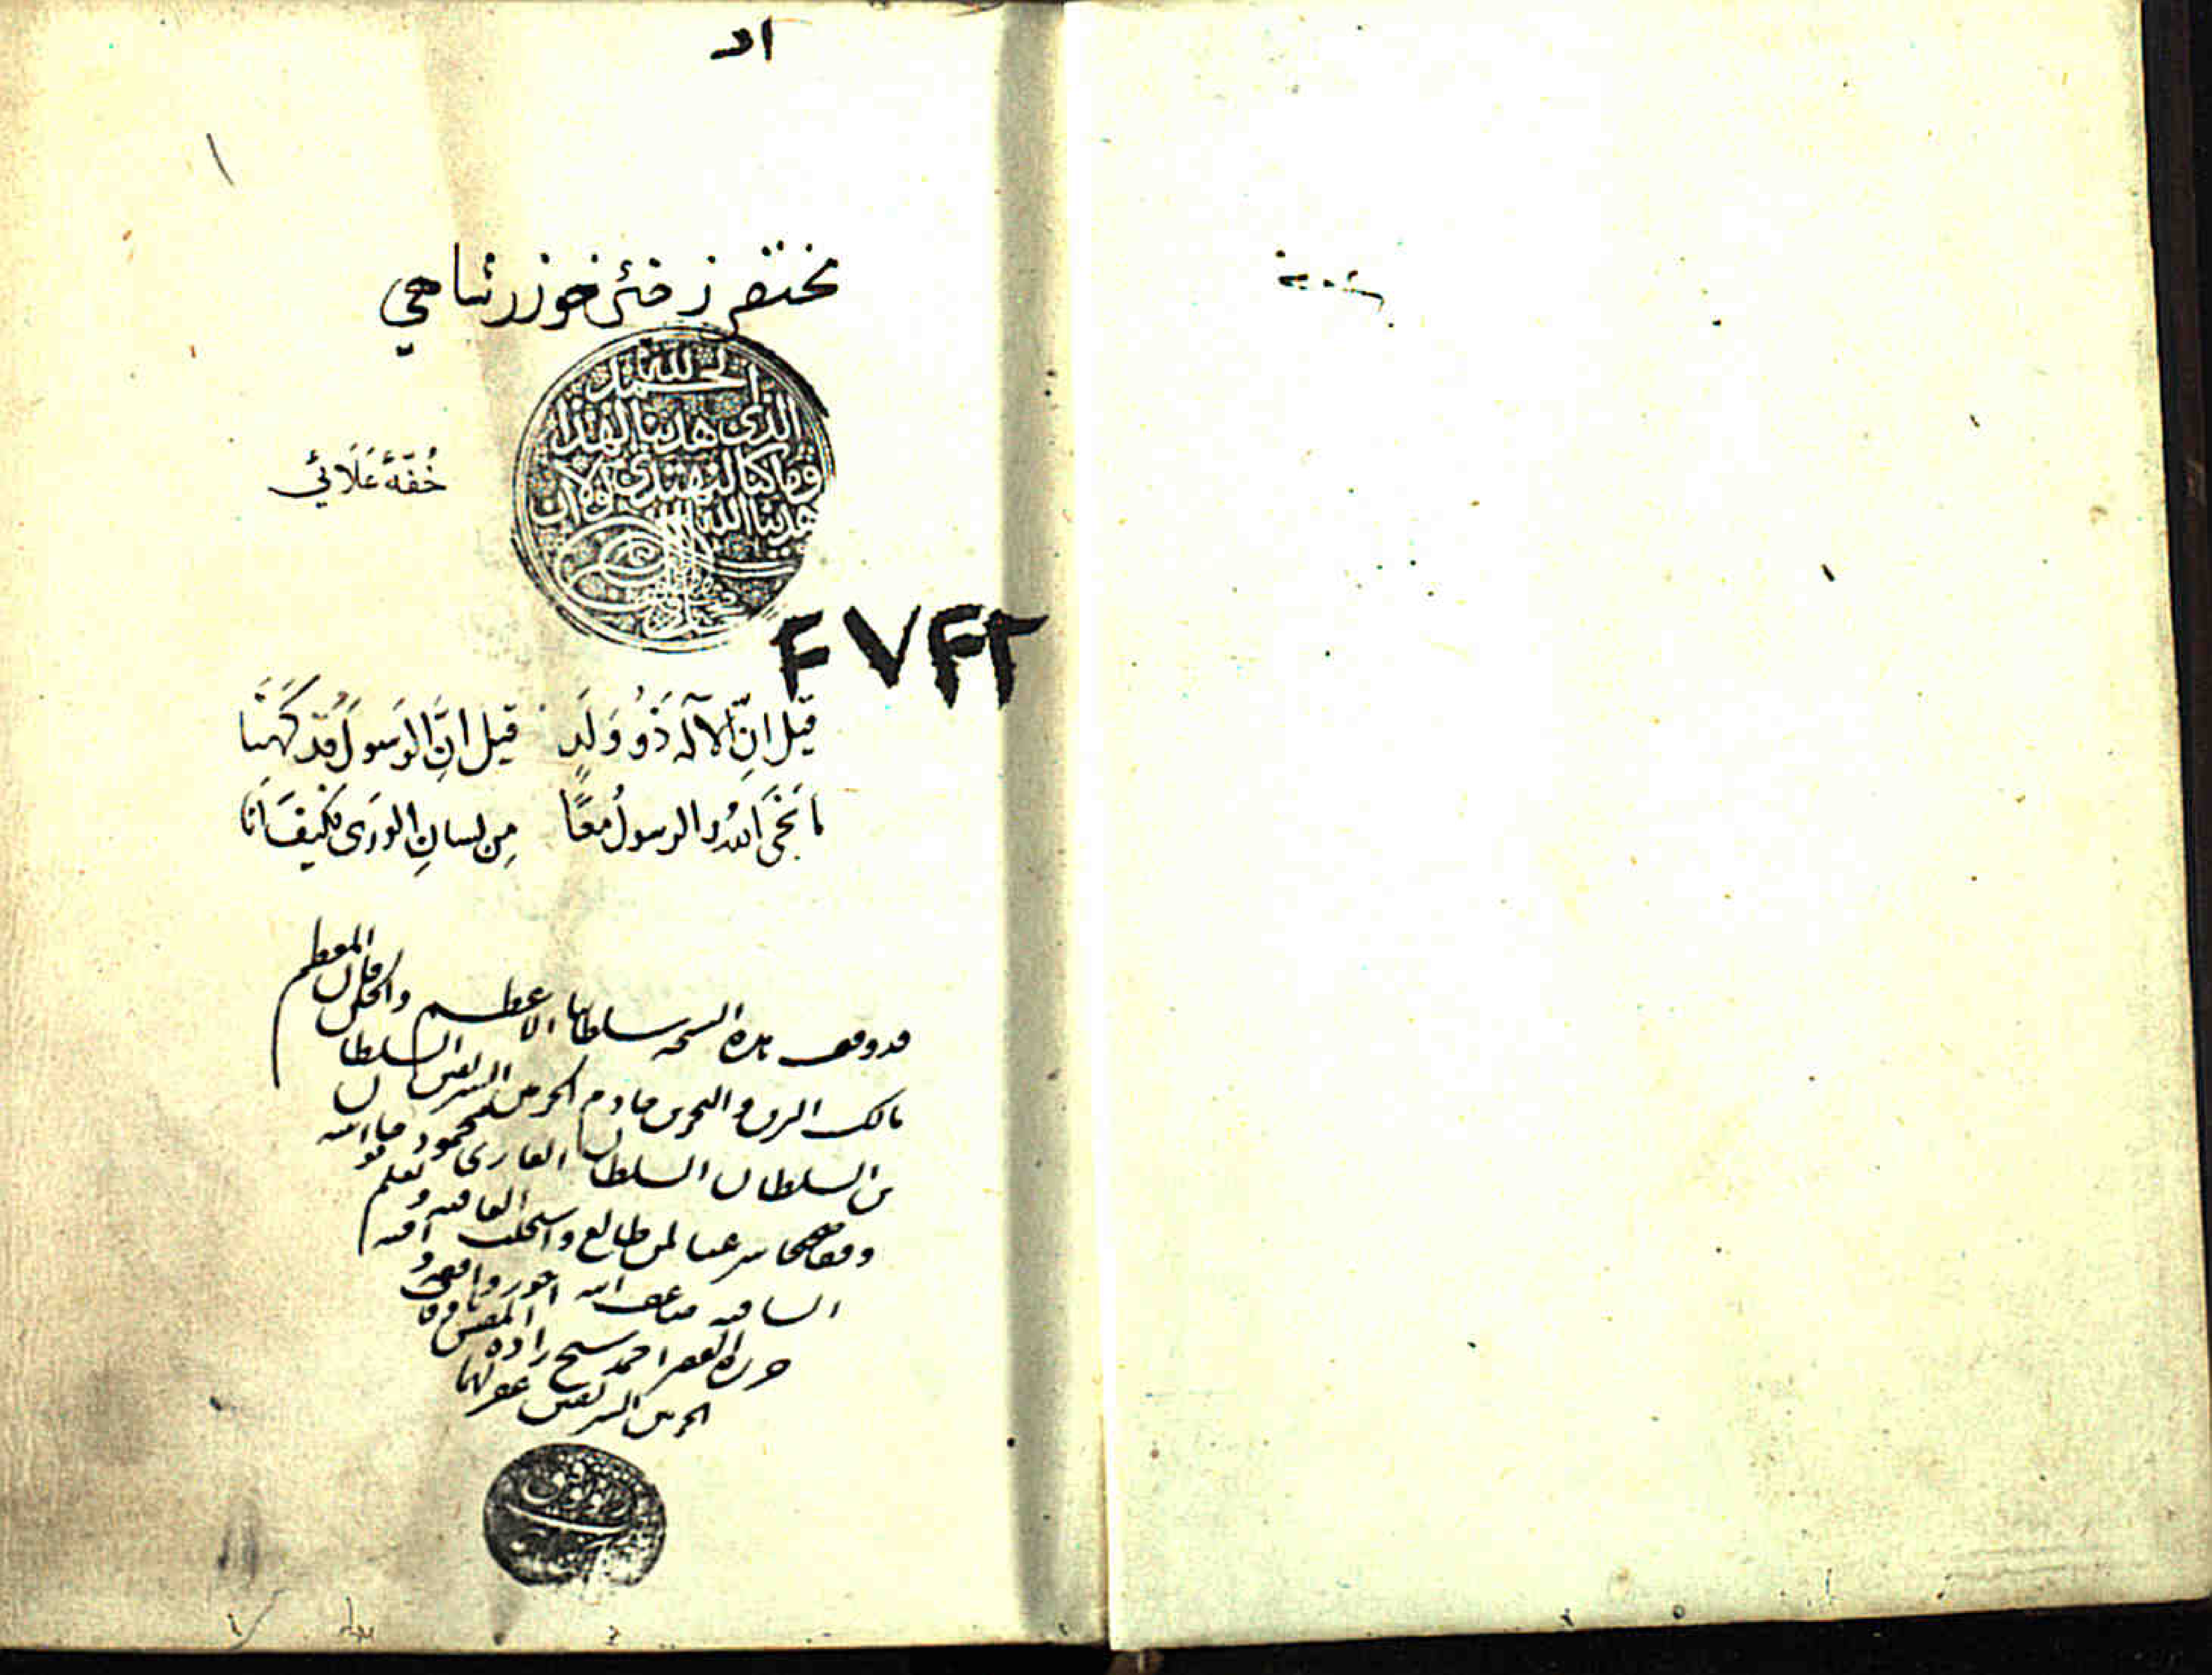 مختصر ذخيرۀ خوارزمشاهي
الحمد لله
الذى هدينا لهذا
وما كنا لنهتدى لولا ان
هدينا الله
خُفّهٔ عَلَائي
۴۷۴۲
قيل انّ الاله ذُو وَلَدٍ قيل انّ الرسول قد كَهَنَا
ما نَجَى اللهُ والرسولُ معًا مِن لسانِ الورَى فكيفَ انَا
قد وقف هذه النسخه سلطاننا الاعظم والخاقان المعظم
مالك البرين والبحرين خادم الحرمين الشريفين السلطان
بن السلطان السلطان الغازى محمود خان
وقفا صحيحا شرعيا لمن طالع
حرره الفقير احمد شيخ زاده المفتش باوقاف
الحرمين الشريفين غفر لهما